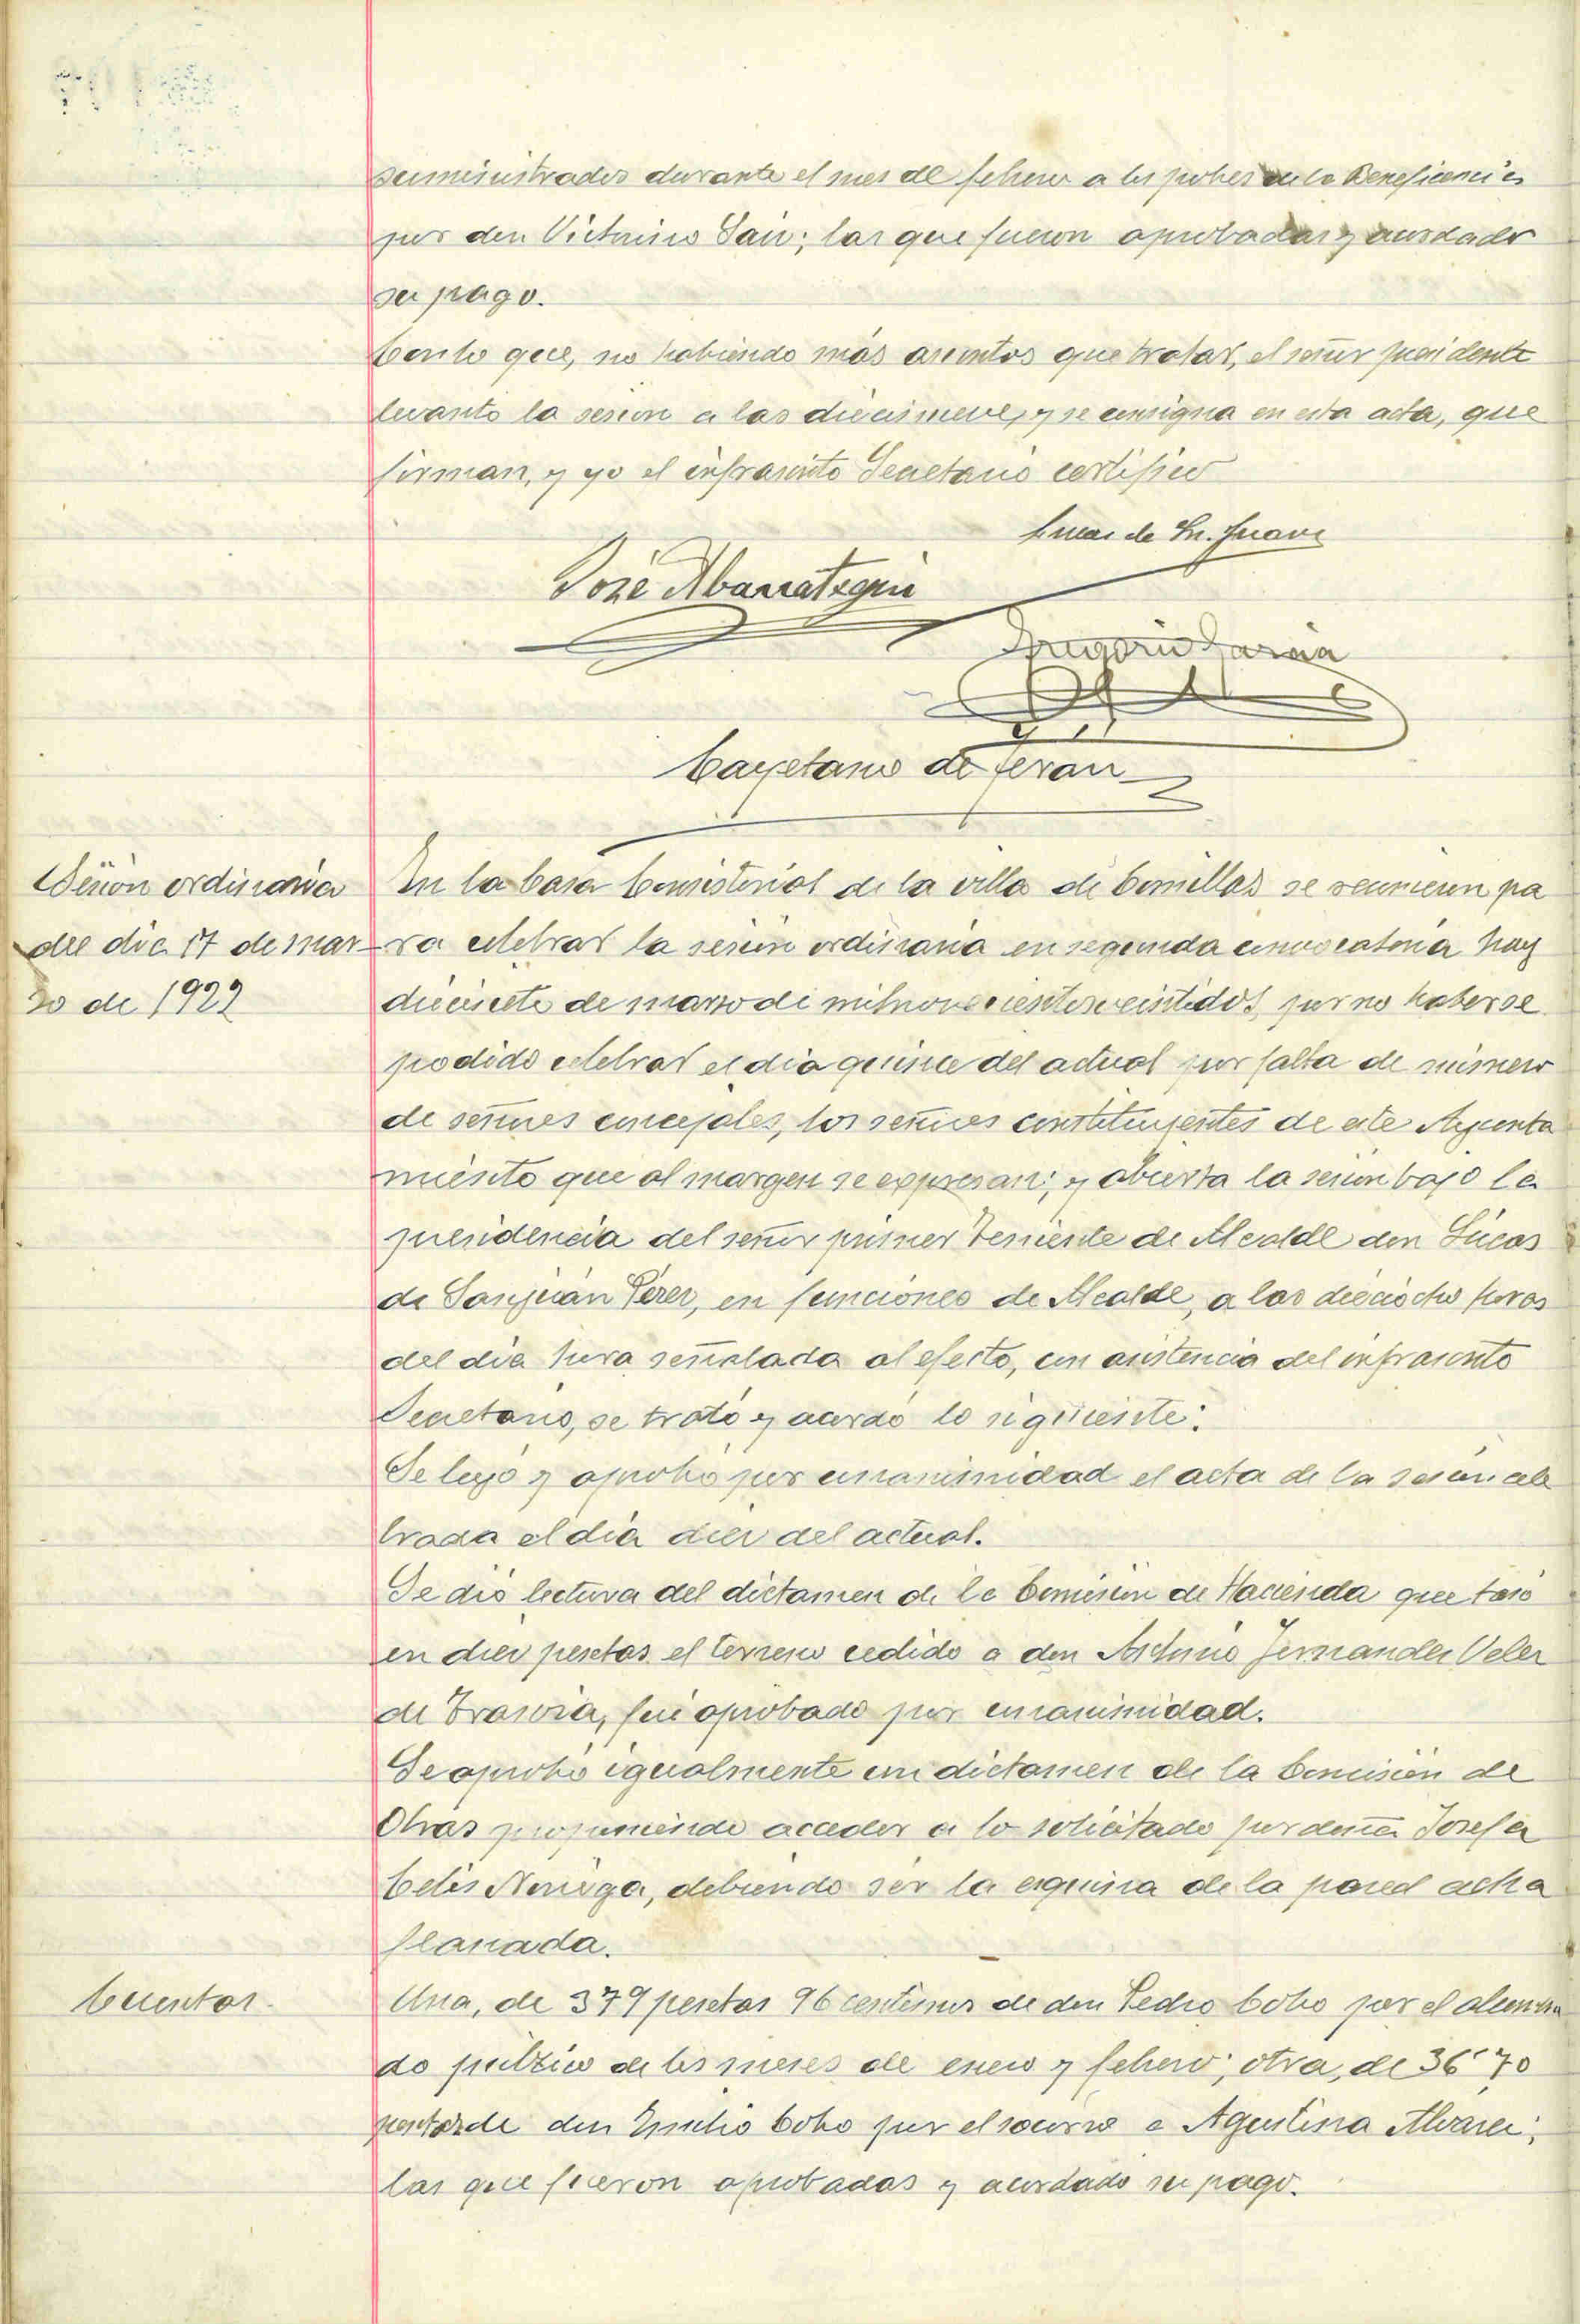 suministrados durante el mes de febrero a los pobres de la Beneficencia
por don Victorino San; las que fueron aprobadas y acordado
su pago.
Con lo que, no habiendo más asuntos que tratar, el señor presidente
levantó la sesión a las diecinueve, y se consigna en esta acta, que
firman, y yo el infrascrito Secretario certifico
Lucas de Sn. Juan
José Abarrategui
Gregorio Garcia
Cayetano de Teran
Sesión ordinaria
del dia 17 de mar
zo de 1922
En la Casa Consistorial de la villa de Comillas se reunieron pa
ra celebrar la sesión ordinaria en segunda convocatoria hoy
diecisiete de marzo de mil novecientos veintidós, por no haberse
podido celebrar el dia quince del actual por falta de número
de señores concejales, los señores constituyentes de este Ayunta
miento que al margen se expresan; y abierta la sesión bajo la
presidencia del señor primer Teniente de Alcalde don Lúcas
de Sanjuán Pérez, en funciones de Alcalde, a las dieciocho horas
del dia hora señalada al efecto, con asistencia del infrascrito
Secretario, se trató y acordó lo siguiente:
Se leyó y aprobó por unanimidad el acta de la sesión cele
brada el dia diez del actual.
Se dió lectura del dictamen de la Comisión de Hacienda que tasó
en diez pesetas el terreno cedido a don Antonio Fernandez Velez
de Trasvia, fué aprobado por unanimidad.
Se aprobó igualmente un dictamen de la Comisión de
Obras proponiendo acceder a lo solicitado por doña Josefa
Celis Noriega, debiendo ser la esquina de la pared acha
flanada.
Cuentas.
Una, de 379 pesetas 96 centimos de don Pedro Cobo por el alumbra
do público de los meses de enero y febrero; otra, de 36'70
pesetas de don Emilio Cobo por el socorro a Agustina Alvarez;
las que fueron aprobadas y acordado su pago.